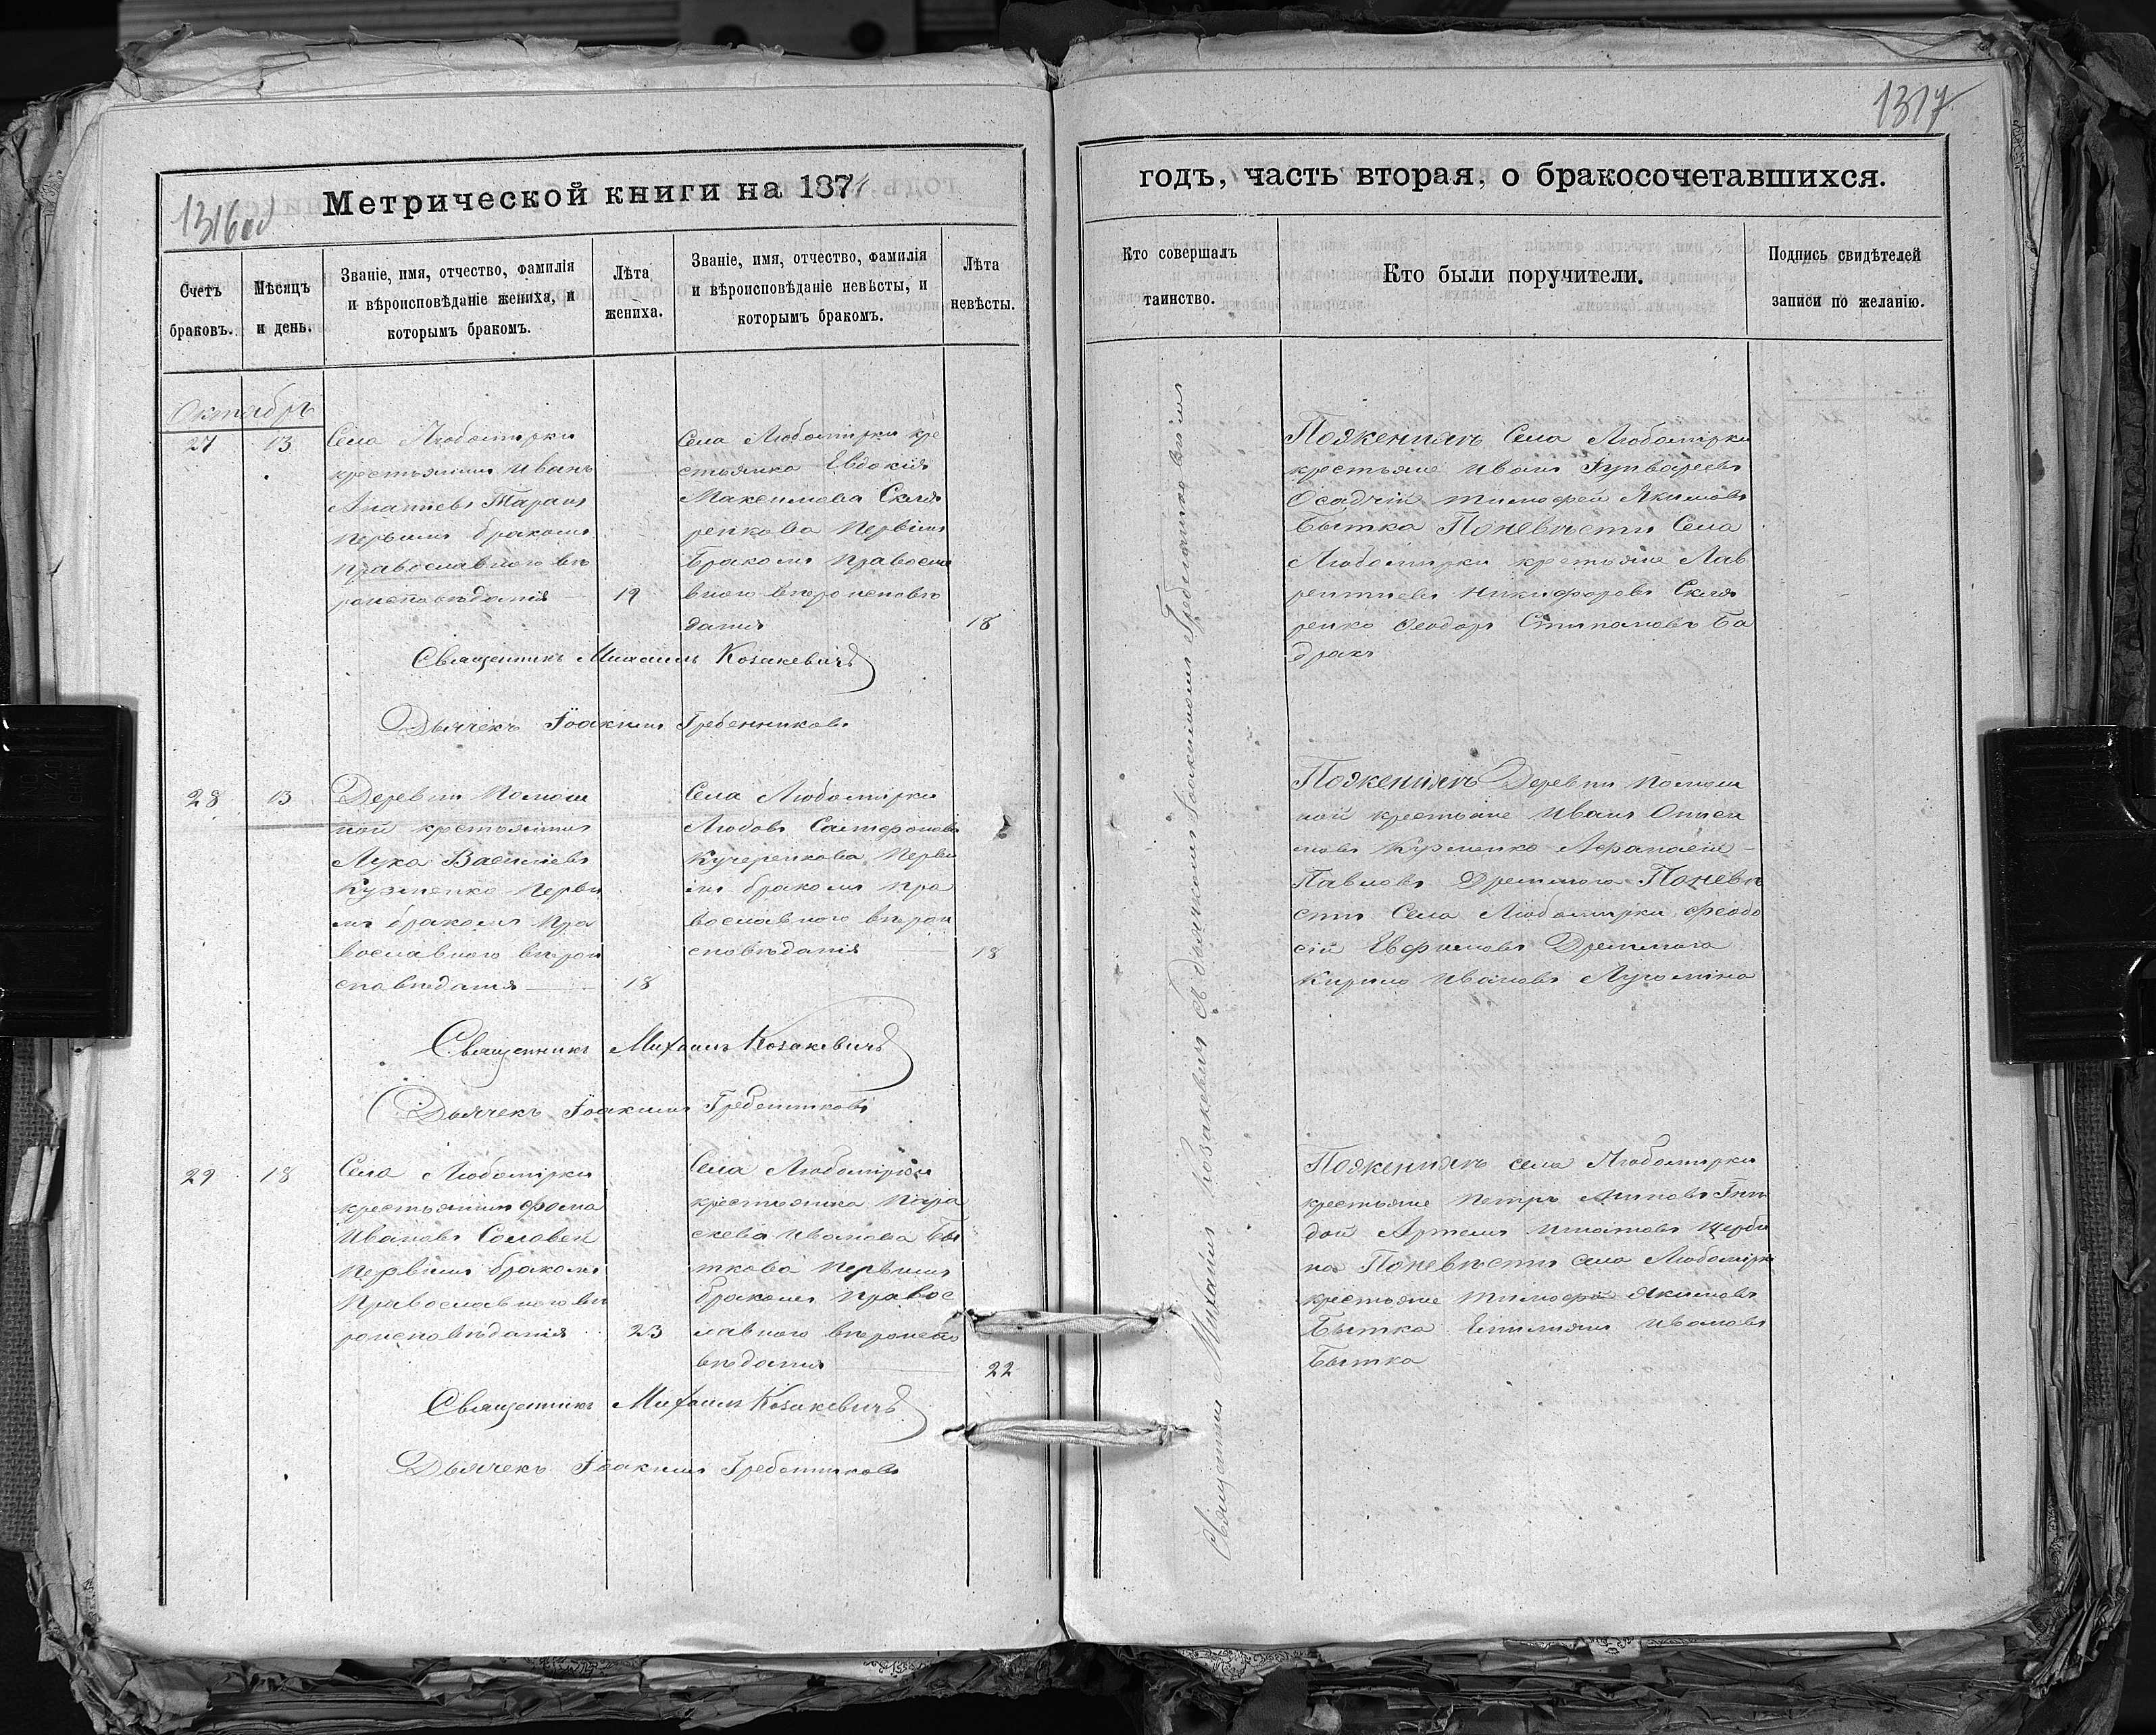 1316об
Метрической книги на 1871
Счетъ
браковъ.
Мѣсяцъ
и день.
Званіе, имя, отчество, фамилія
и вѣроисповѣданіе жениха, и
которымъ бракомъ.
Лѣта
жениха.
Званіе, имя, отчество, фамилія
и вѣроисповѣданіе невѣсты, и
которымъ бракомъ.
Лѣта
невѣсты.
Октябрь
27
13
Села Любомірки
крестьянинъ Иванъ
Ананіевъ Таранъ
первымъ бракомъ
православного вѣ
роисповѣданія
19
Села Любомірки кре
стьянка Евдокія
Максимова Скля
ренкова первымъ
бракомъ правосла
вного вѣроисповѣ
данія
18
Священникъ Михаилъ Козакевичъ
Дьячекъ Іоакимъ Гребенниковъ
28
13
Деревни Помош
ной крестьянинъ
Лука Василіевъ
Кузменко первы
мъ бракомъ пра
вославного вѣрои
сповѣданія
18
Села Любомірки
Любовь
Кучеренкова первы
мъ бракомъ пра
вославного вѣрои
сповѣданія
18
Священникъ Михаилъ Козакевичъ
Дьячекъ Іоакимъ Гребенниковъ
29
18
Села Любомірки
крестьянинъ Фома
Ивановъ Соловей
первымъ бракомъ
православного вѣ
роисповѣданія
23
Села Любомірки
крестьянка Пара
скева Иванова Бы
ткова первымъ
бракомъ правос
лавного вѣроиспо
вѣданія
22
Священникъ Михаилъ Козакевичъ
Дьячекъ Іоакимъ Гребенниковъ
1317
годъ, часть вторая, о бракосочетавшихся.
Кто совершалъ
таинство.
Кто были поручители.
Подпись свидѣтелей
записи по желанію.
Священникъ Михаилъ Козакевичъ съ дьячкомъ Іоакимомъ Гребенниковымъ
Поженихѣ Села Любомірки
крестьяне Иванъ
Осадчій Тимофей Якимовъ
Бытка Поневѣсти Села
Любомірки крестьяне Лав
рентіевъ Никифоровъ Скля
ренко Феодоръ Стипановъ Ба
бракъ
Поженихѣ Деревни Помош
ной крестьяне Иванъ
Кузменко Афанасій
Павловъ Дремлюга Поневѣ
сти Села Любомірки Феодо
сій Евфимовъ Дремлюга
Кирило Ивановъ
Поженихѣ села Любомірки
крестьяне Петръ
Артемъ Игнатовъ Щерби
на Поневѣсти села Любомірки
крестьяне Тимофей Якимовъ
Бытка Емиліянъ Ивановъ
Бытка